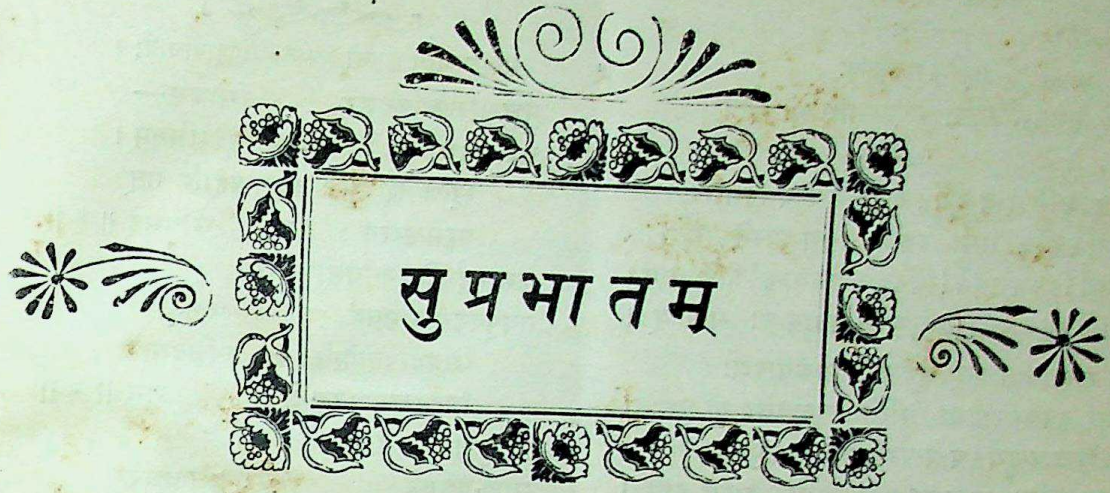 सुप्रभातम्